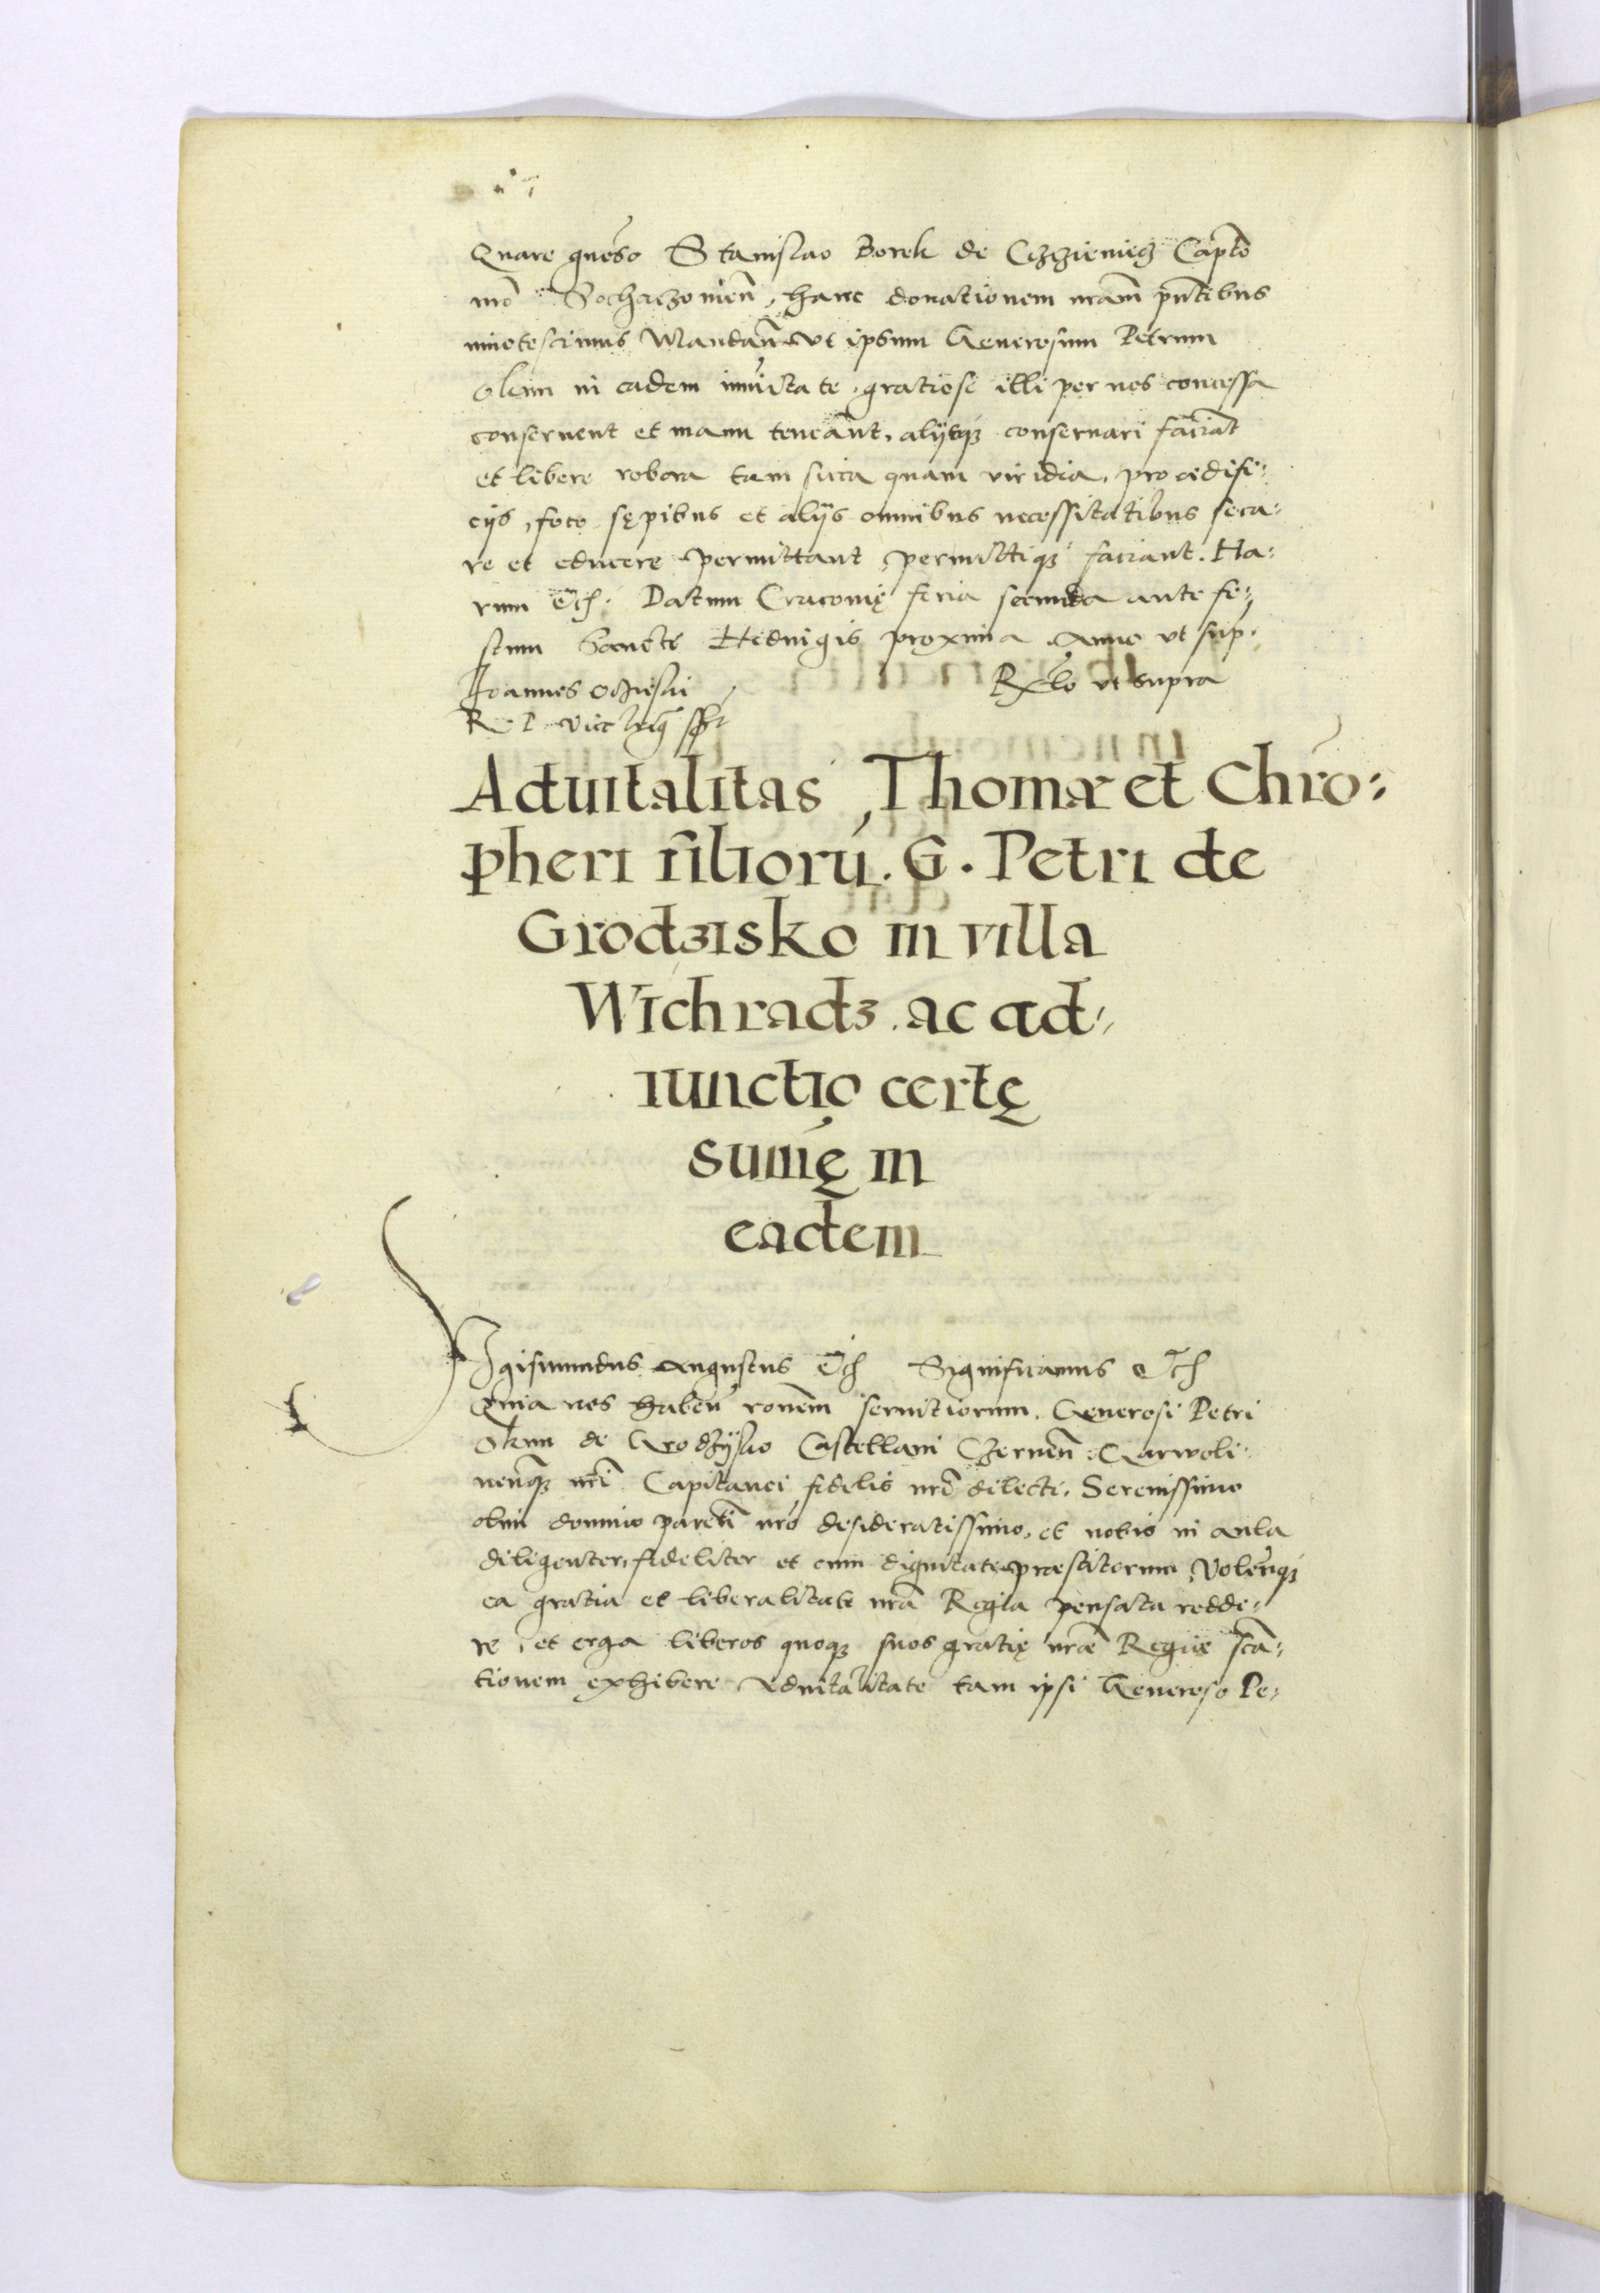 Quare gnoso Stanislao Borek de Cchzienicz Capto
nro Sochaczonien, hanc donationem nram pntibus
innotescimus Mandan ut ipsum Generosum Petrum
Okun in eadem immitate gratiose illi per nos concessa
conseruent et manu teneant, alijsqз conseruari faciat
et libere robora tam sicca quam viridia, pro ędifi:
cijs, foco sępibus et alijs omnibus necessitatibus seca:
re et educere permittant permittiqз faciant. Ha:
rum Etc. Datum Cracovię feria secunda ante fe:
stum Sancte Heduigis proxima Anno ut sup.
Joannes Oczieski
Rxlo ut supra
R. P. vice
Aduitalitas Thomæ et Chro:
pheri filiorū. G. Petri de
Grodzisko in villa
Wichradz. ac ad:
iunctio certę
sumę in
eadem
Sigismundus Augustus Etc Significamus Etc
Quia nos haben ronem seruitiorum, Generosi Petri
Okun de Grodzijsko Castellani Czernen. Garwoli:
nenqз nri Capitanei fidelis nri dilecti, Serenissimo
olim domino parenti nro desideratissimo, et nobis in aula
diligenter, fideliter et cum dignitate præstitorum, Volenqз
ea gratia et liberalitate nra Regia pensata redde:
re, et erga liberos quoqз suos gratię nræ Regiæ
tionem exhibere Aduitalitate tam ipsi Generoso Pe: